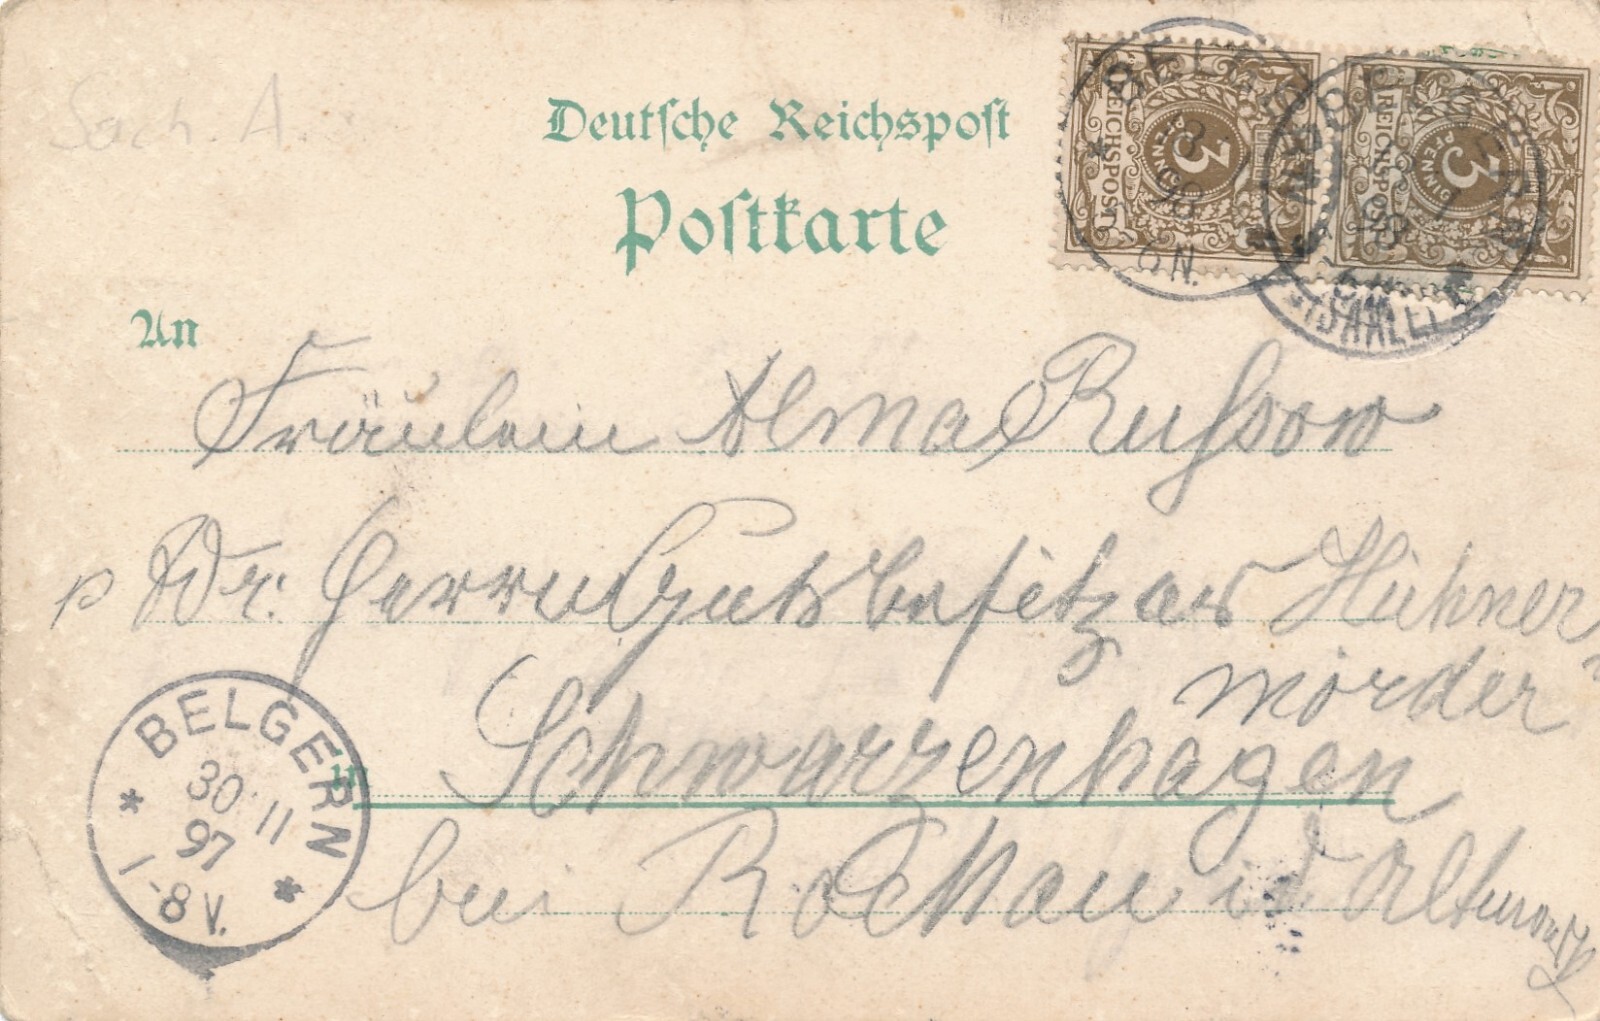 Sach. A.
Deutsche Reichspost
Postkarte
REICHSPOST 3 PFENNIG
REICHSPOST 3 PFENNIG
An
Fräulein Alma Russow
p Adr. Herrn Gutsbesitzer Hühner-
mörder
Schwarzenhagen
bei Rochau i. d. Altmark
BELGERN
30 11
97
1-8 V.